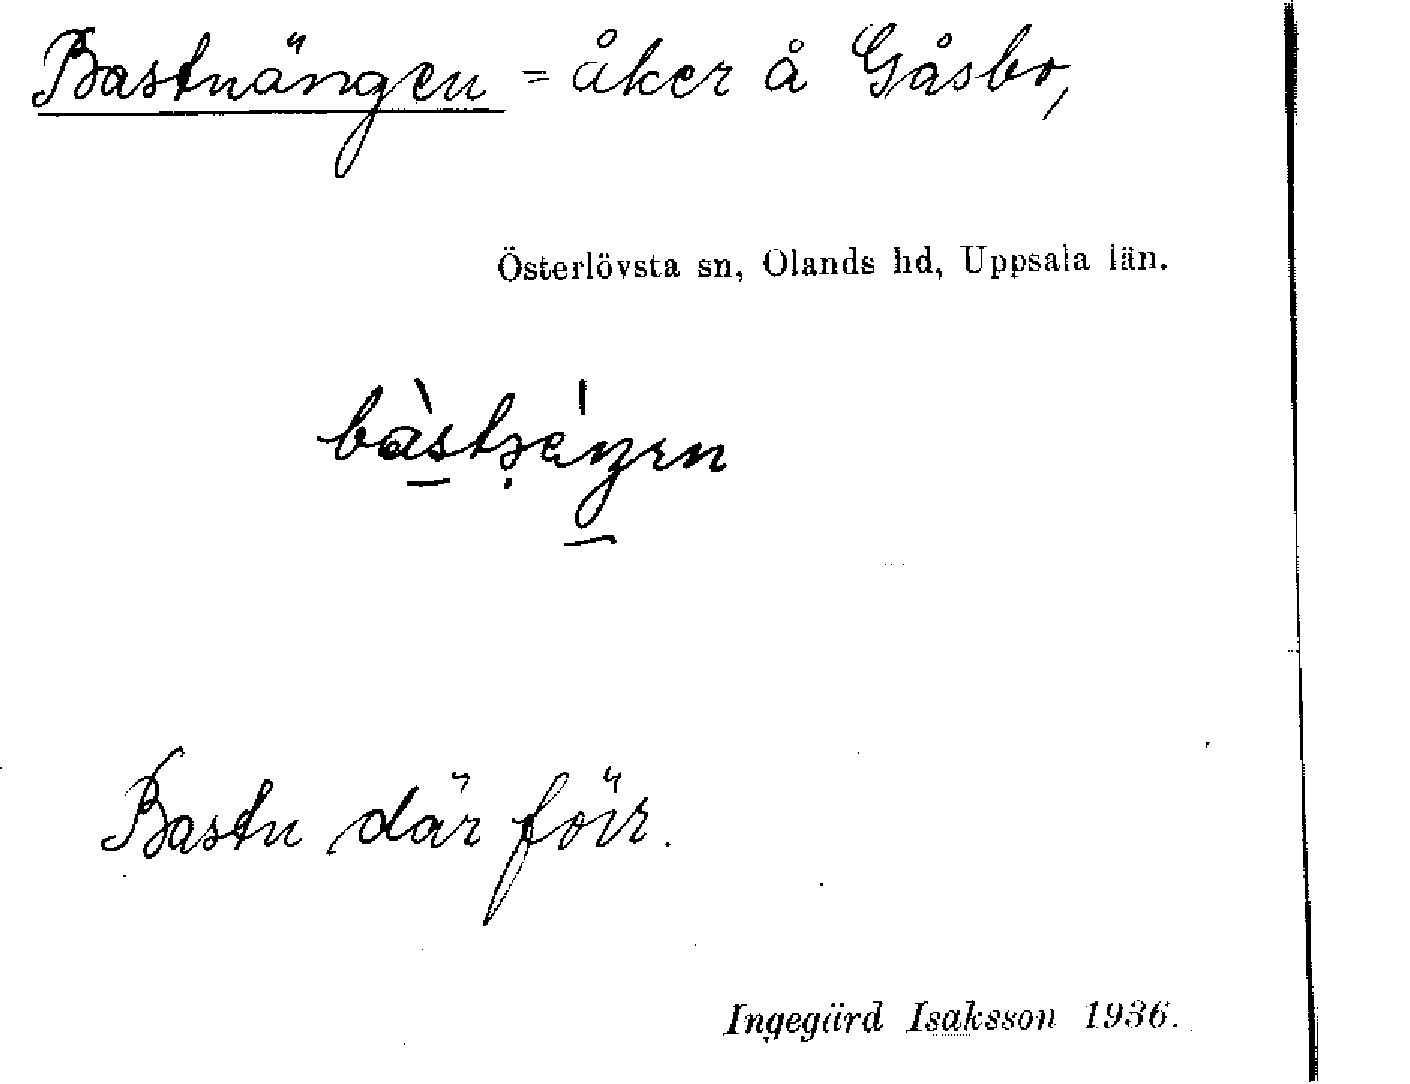 Bastuängen = åker å Gåsbo,
Österlövsta sn, Olands hd, Uppsala län.
Bastu där förr.
Ingegärd Isaksson 1936.